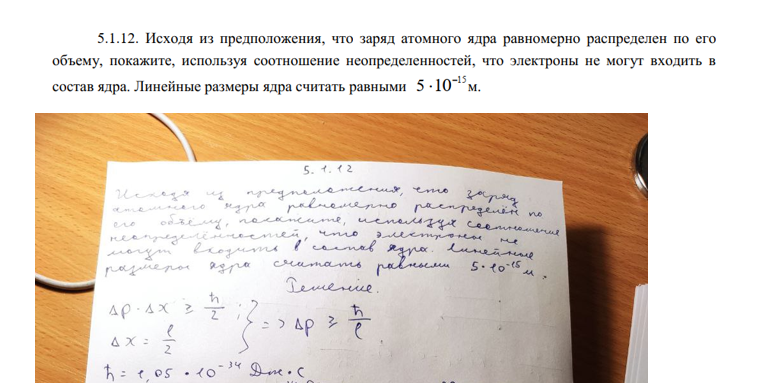 5.1.12. Исходя из предположения, что заряд атомного ядра равномерно распределен по его
объему, покажите, используя соотношение неопределенностей, что электроны не могут входить в
состав ядра. Линейные размеры ядра считать равными 5·10⁻¹⁵м.
5.1.12
Исходя из предположения, что заряд
атомного ядра равномерно распределён по
его объёму, покажите, используя соотношение
неопределённостей, что электроны не
могут входить в состав ядра. Линейные
размеры ядра считать равными 5·10⁻¹⁵ м.
Решение.
Δp · Δx ≥ ħ/2 ;
Δx = l/2 } => Δp ≥ ħ/l
ħ = 1,05 · 10⁻³⁴ Дж · с